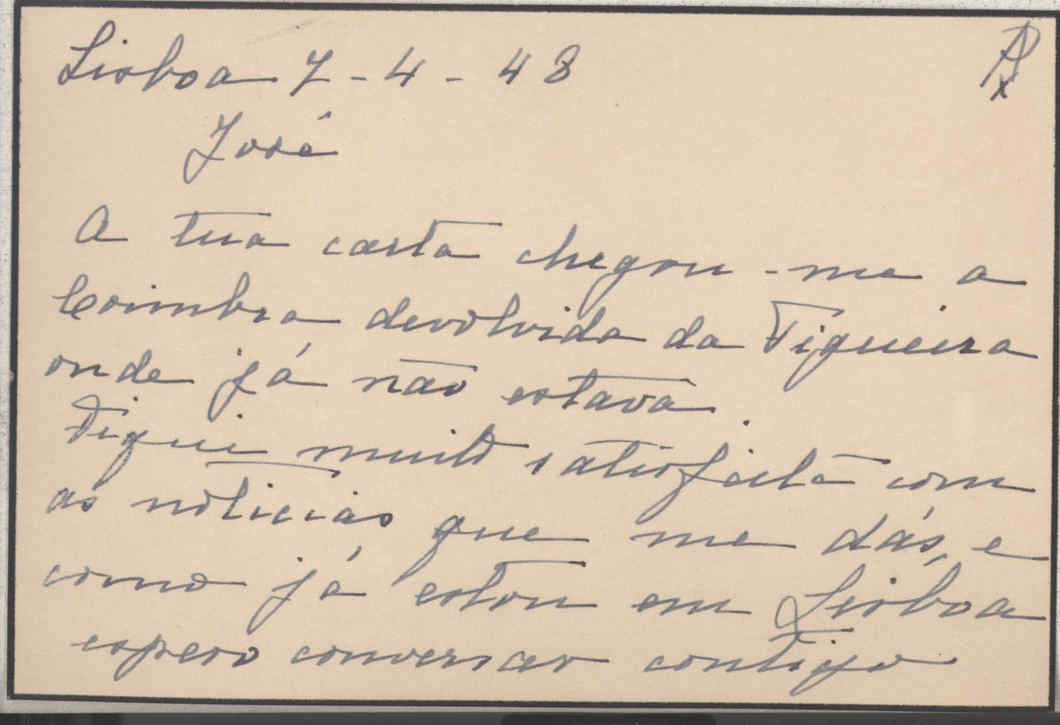 Lisboa 7-4-48
José
A tua carta chegou-me a
Coimbra devolvida da Figueira
onde já não estava.
Fiquei muito satisfeita com
as noticias que me dás, e
como já estou em Lisboa
espero conversar contigo